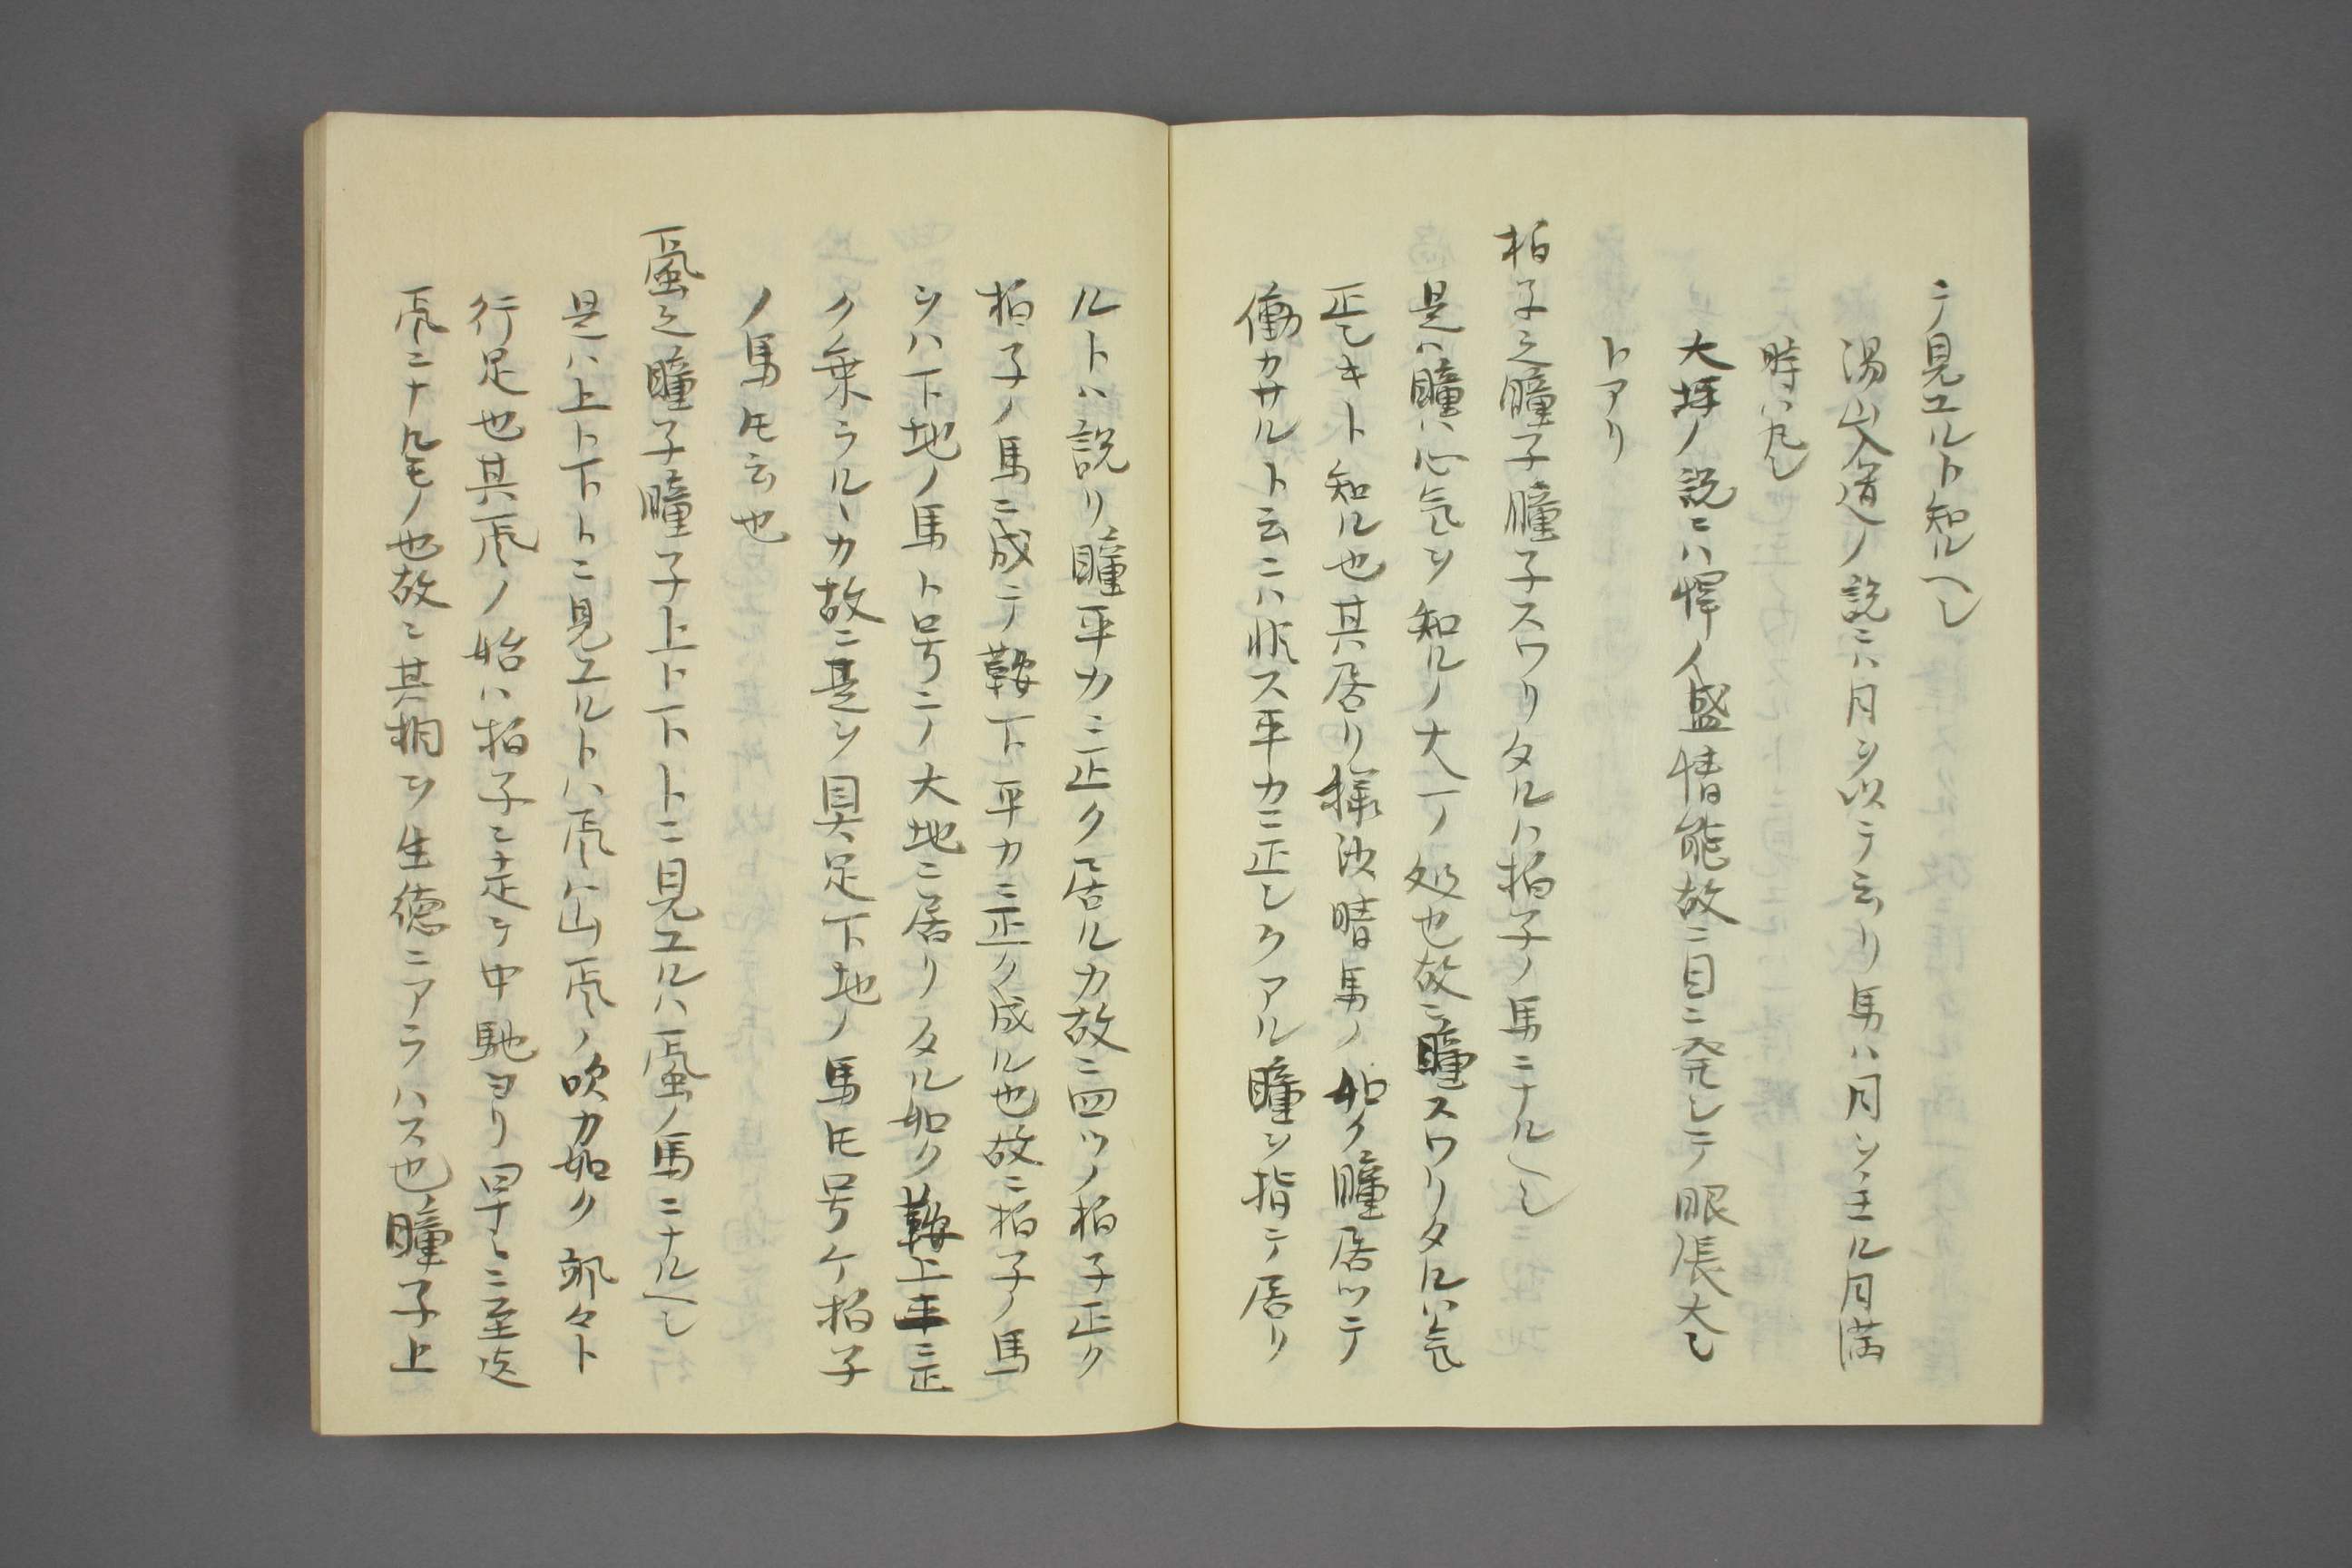 テ見エルト知ルヘシ
湯山入道ノ説ニハ月ヲ以テ云リ馬ハ月ヲ主ル月満
時ハ丸シ
大坪ノ説ニハ悍ノ盛情能故ニ目ニ発シテ眼張大シ
トアリ
拍子之瞳子瞳子スワリタルハ拍子ノ馬ニナルヘシ
是ハ瞳ハ心気ヲ知ルノ大一ノ処也故ニ瞳スワリタルハ気
正シキト知ル也其居リ様決晴馬ノ如ク瞳居ツテ
働カサルト云ニハ非ス平カニ正シクアル瞳ヲ指テ居リ
ルトハ説リ瞳平カニ正ク居ルカ故ニ四ツノ拍子正ク
拍子ノ馬ニ成テ鞍下平カニ正ク成ル也故ニ拍子ノ馬
ヲハ下地ノ馬ト号ニテ大地ニ居リタル如ク鞍上平ニ正
ク乗ラルヽカ故ニ是ヲ具足下地ノ馬トモ号ケ拍子
ノ馬トモ云也
颪之瞳子瞳子上ト下トニ見エルハ颪ノ馬ニナルヘシ
是ハ上ト下トニ見エルトハ凮ケ山凮ノ吹カ如ク颯々ト
行足也其凮ノ始ハ拍子ニ走テ中馳ヨリ早ニ至迄
凮ニナルモノ也故ニ其相ヲ生徳ニアラハス也瞳子上